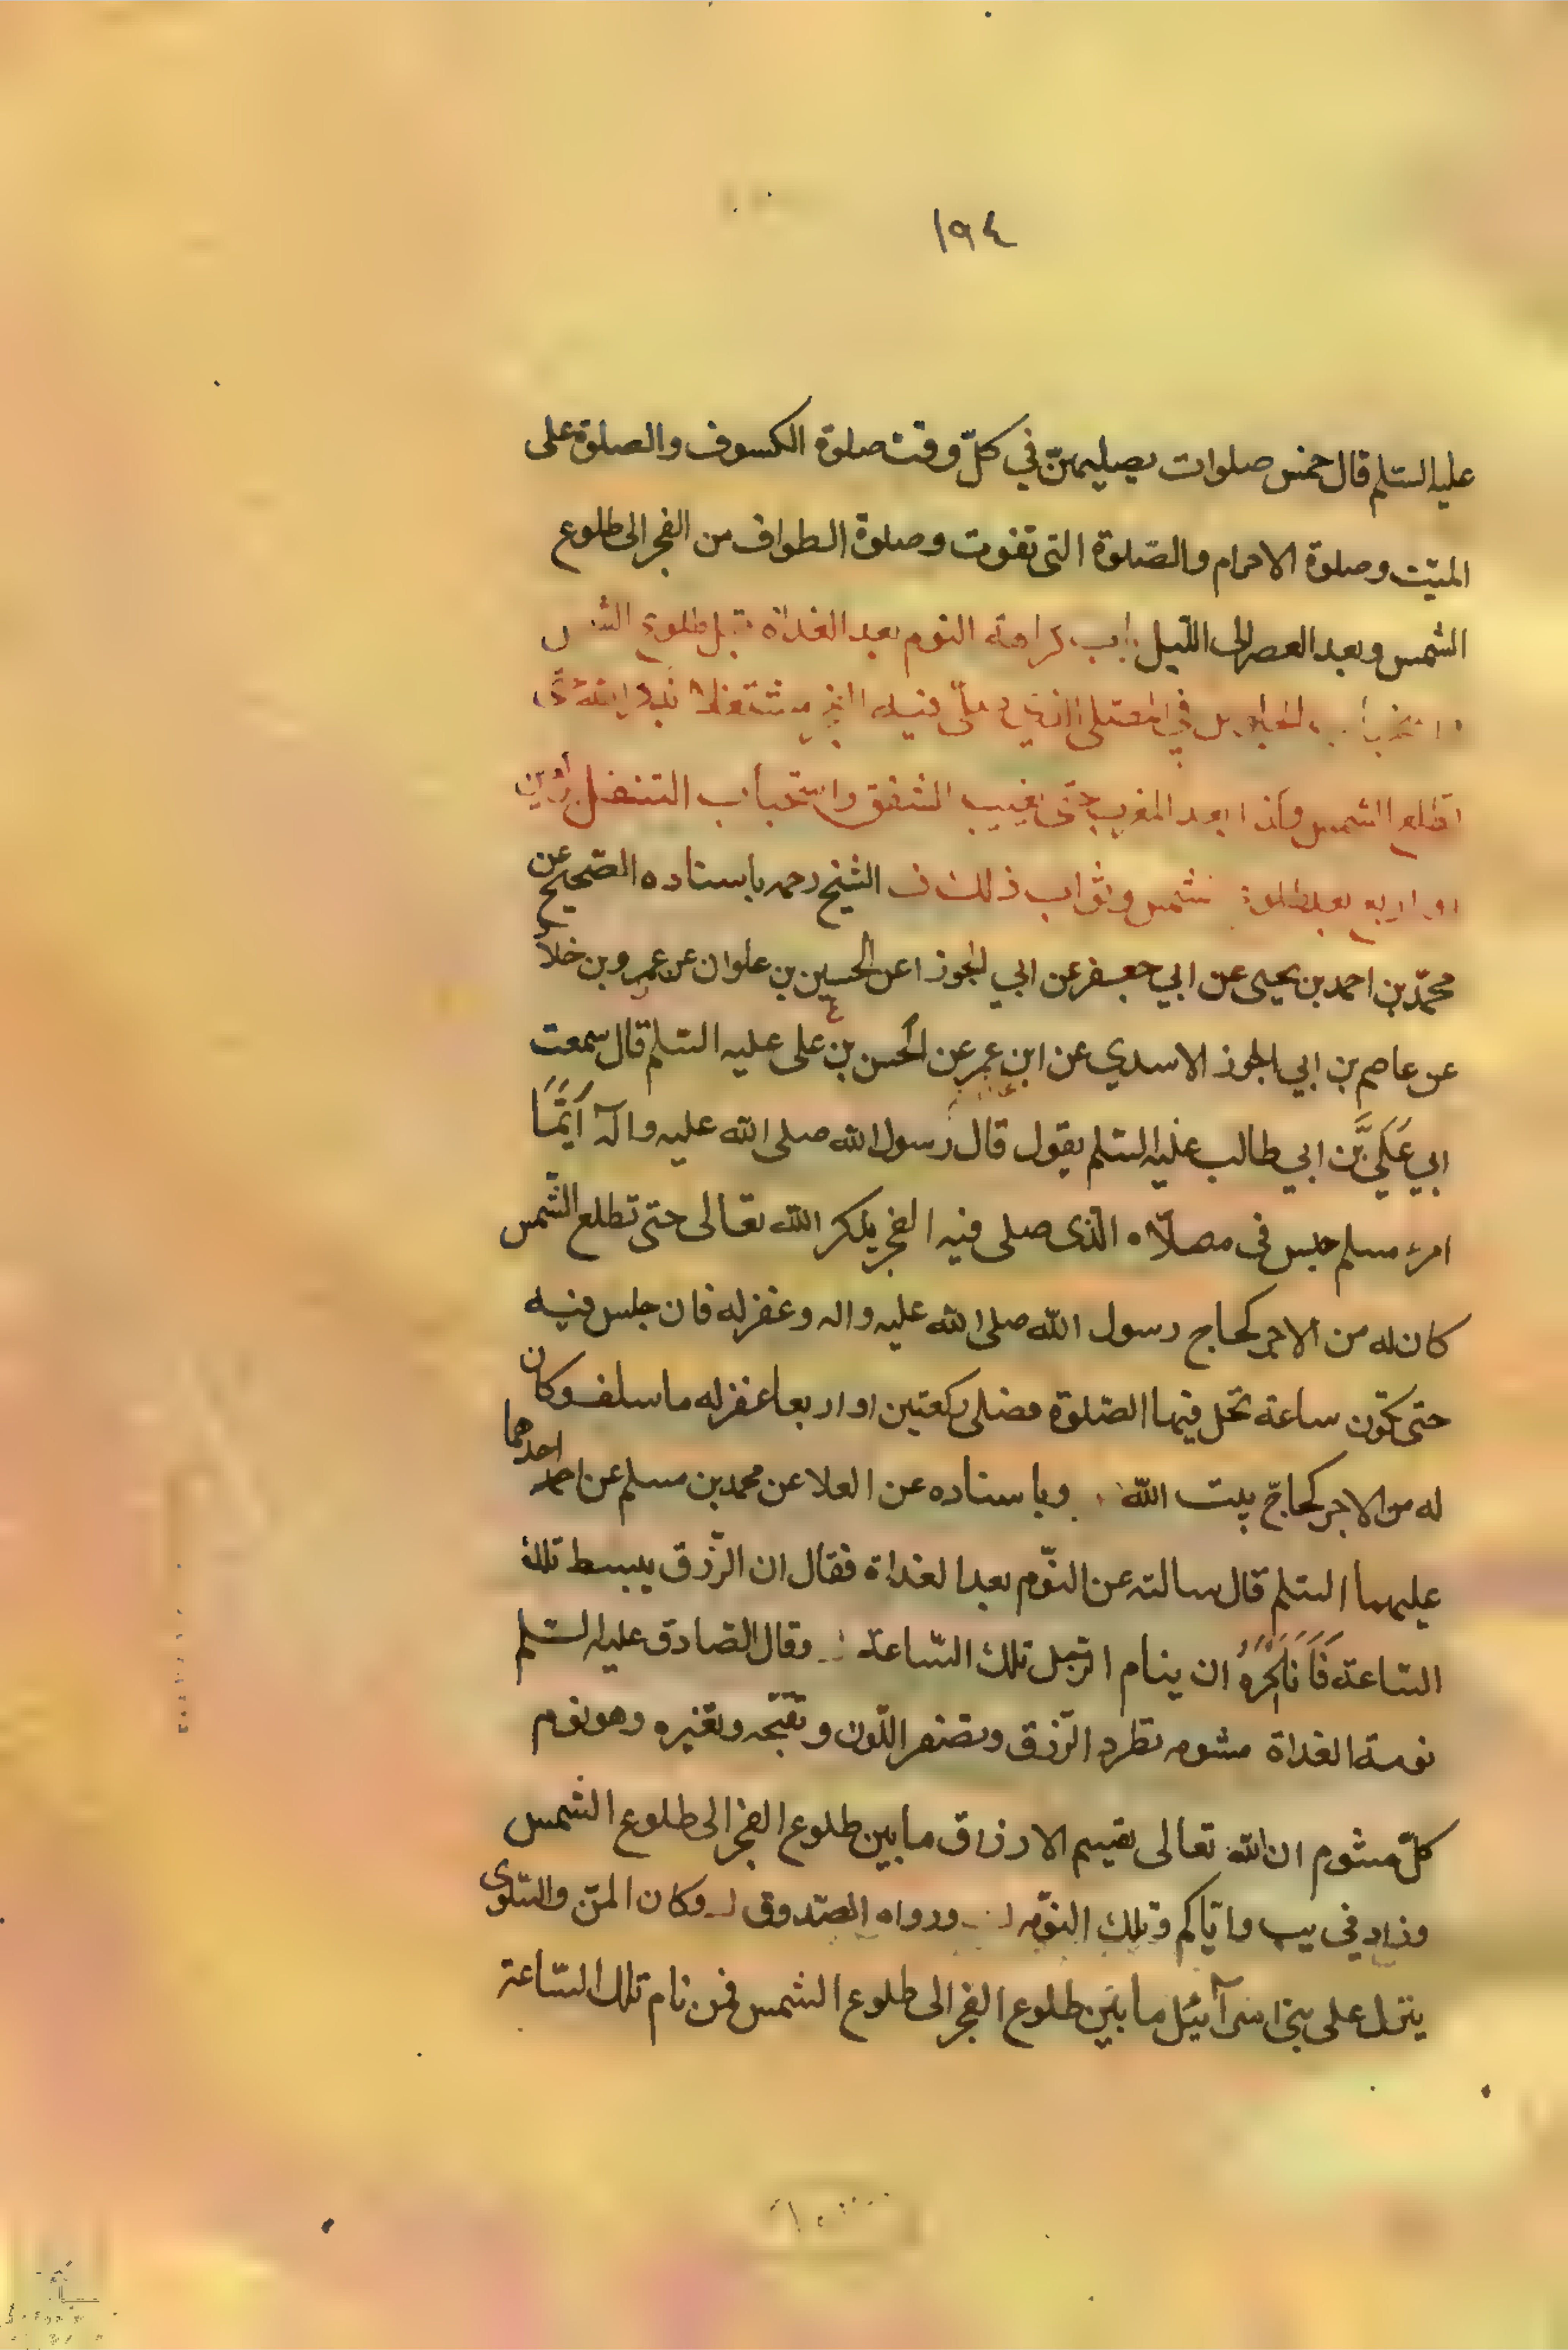 ١٩٤
عليه السّلم قال خمس صلوات يصليهنّ في كلّ وقت صلوة الكسوف والصلوة على
الميّت وصلوة الاحرام والصّلوة التى تفوت وصلوة الطواف من الفجر الى طلوع
الشمس وبعد العصر الى اللّيل باب كراهة النوم بعد الغداة قبل طلوع الشمس
في المصلى الذي صلى فيه
تطلع الشمس وكذا بعد المغرب حتّى يغيب الشفق واستحباب التنفل
او اربع بعد طلوع الشمس وثواب ذلك الشيخ رحمه باسناده الصّحيح عن
محمّد بن احمد بن يحيى عن ابي جعفر عن ابي الجوزا عن الحسين بن علوان عن عمرو بن خلد
عن عاصم بن ابي الجوز الاسدي عن ابن عمر عن الحسن بن على عليه السّلم قال سمعت
ابي عَلَيَّ بَّن ابي طالب عليه السّلم يقول قال رسول الله صلى الله عليه واله اَيَّمَا
امرء مسلم جلس فى مصلّاه الّذى صلى فيه الفجر يذكر الله تعالى حتى تطلع الشّمس
كان له من الاجر كحاج رسول الله صلى الله عليه واله وغفر له فان جلس فيه
حتى تكون ساعة تحل فيها الصّلوة فصلى ركعتين او اربعا غفر له ما سلف وكان
له من الاجر كحاجّ بيت الله وباسناده عن العلا عن محمد بن مسلم عن احدهما
عليهما السّلم قال سالته عن النّوم بعد الغداة فقال ان الرّزق يبسط تلك
السّاعة فَاَنَا اَكْرَهُ ان ينام الرّجل تلك السّاعة وقال الصّادق عليه السّلم
نومة الغداة مشومه تطرد الرّزق وتصفر اللّون وتقبّحه وتغيره وهو نوم
كلّ مشوم ان الله تعالى يقسم الارزاق ما بين طلوع الفجر الى طلوع الشمس
وزاد في يب وايّاكم وتلك النّومه ورواه الصّدوق وكان المنّ والسّلوى
ينزل على بنى اسرآئيل ما بين طلوع الفجر الى طلوع الشمس فمن نام تلك السّاعة